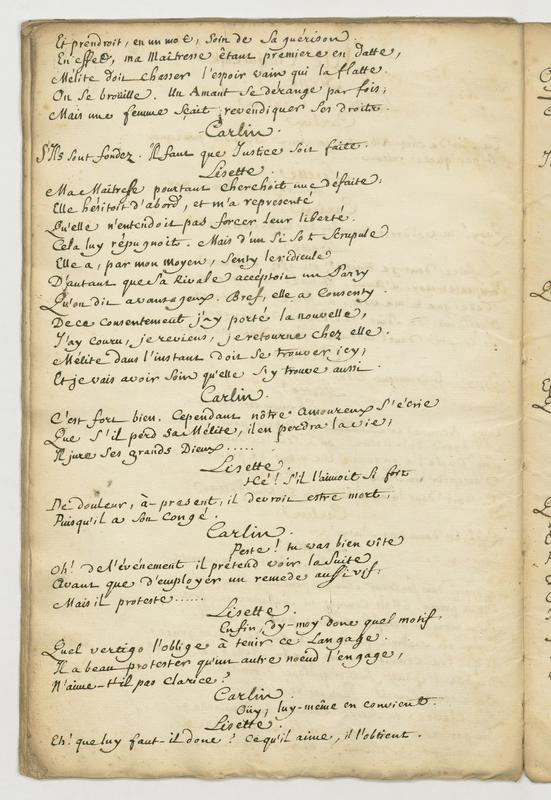 Et prendroit, en un mot, soin de sa guérison.
En effet, ma Maîtresse êtant premiere en datte,
Mélite doit chasser l'espoir vain qui la flatte.
On se broüille. Un Amant se dérange par fois;
Mais une femme sçait revendiquer ses droits.
Carlin.
S'Ils sont fondez. Il faut que Justice soit faite.
Lisette.
Ma Maîtresse pourtant cherchoit une défaite;
Elle hésitoit d'abord, et m'a representé
Qu'elle n'entendoit pas forcer leur liberté.
Cela luy répugnoit. Mais d'un si sot scrupule
Elle a, par mon moyen, senty le ridicule
D'autant que sa Rivale acceptoit un Party
Qu'on dit avantageux. Bref, elle a consenty.
De ce consentement j'ay porté la nouvelle,
J'ay couru, je reviens, je retourne chez elle.
Mélite dans l'instant doit se trouver icy;
Et je vais avoir soin qu'elle s'y trouve aussi.
Carlin.
C'est fort bien. Cependant nôtre amoureux s'écrie
Que s'il perd sa Mélite, il en perdra la vie;
Il jure ses grands Dieux.....
Lisette.
Hé! s'il l'aimoit si fort
De douleur, à-present, il devroit estre mort,
Puisqu'il a son congé.
Carlin.
Peste! tu vas bien vîte
Oh! de l'événement il prétend voir la suite
Avant que d'employer un remede aussi vif;
Mais il proteste......
Lisette.
Enfin, dy-moy donc quel motif,
Quel vertigo l'oblige à tenir ce Langage.
Il a beau protester qu'un autre noeud l'engage,
N'aime-t-il pas Clarice?
Carlin.
Oüy; luy-même en convient.
Lisette.
Eh! que luy faut-il donc? Ce qu'il aime, il l'obtient.